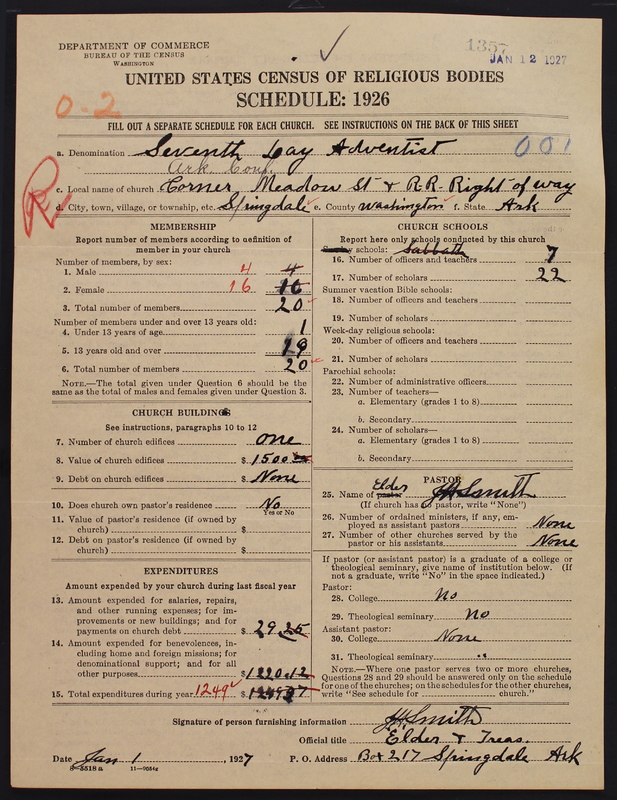 DEPARTMENT OF COMMERCE
BUREAU OF THE CENSUS
WASHINGTON
1357
JAN 12 1927
UNITED STATES CENSUS OF RELIGIOUS BODIES
SCHEDULE: 1926
0-2
FILL OUT A SEPARATE SCHEDULE FOR EACH CHURCH. SEE INSTRUCTIONS ON THE BACK OF THIS SHEET
a. Denomination Seventh Day Adventist 001
Ark. Conf.
c. Local name of church Corner Meadow St & R.R. Right of way
d. City, town, village, or township, etc. Springdale e. County Washington f. State Ark
MEMBERSHIP
Report number of members according to definition of
member in your church
Number of members, by sex:
1. Male 4 4
2. Female 16 16
3. Total number of members 20
Number of members under and over 13 years old:
4. Under 13 years of age 1
5. 13 years old and over 19
6. Total number of members 20
NOTE.—The total given under Question 6 should be
the same as the total of males and females given under Question 3.
CHURCH BUILDINGS
See instructions, paragraphs 10 to 12
7. Number of church edifices one
8. Value of church edifices $ 1500
9. Debt on church edifices $ None
10. Does church own pastor's residence No
Yes or No
11. Value of pastor's residence (if owned by
church) $
12. Debt on pastor's residence (if owned by
church) $
EXPENDITURES
Amount expended by your church during last fiscal year
13. Amount expended for salaries, repairs,
and other running expenses; for im-
provements or new buildings; and for
payments on church debt $ 29.25
14. Amount expended for benevolences, in-
cluding home and foreign missions; for
denominational support; and for all
other purposes $ 1220.12
15. Total expenditures during year 1249 $
CHURCH SCHOOLS
Report here only schools conducted by this church
schools: Sabbath
16. Number of officers and teachers 7
17. Number of scholars 22
Summer vacation Bible schools:
18. Number of officers and teachers
19. Number of scholars
Week-day religious schools:
20. Number of officers and teachers
21. Number of scholars
Parochial schools:
22. Number of administrative officers
23. Number of teachers—
a. Elementary (grades 1 to 8)
b. Secondary
24. Number of scholars—
a. Elementary (grades 1 to 8)
b. Secondary
PASTOR
Elder
25. Name of pastor JH Smith
(If church has no pastor, write "None")
26. Number of ordained ministers, if any, em-
ployed as assistant pastors None
27. Number of other churches served by the
pastor or his assistants None
If pastor (or assistant pastor) is a graduate of a college or
theological seminary, give name of institution below. (If
not a graduate, write "No" in the space indicated.)
Pastor:
28. College No
29. Theological seminary No
Assistant pastor:
30. College None
31. Theological seminary "
NOTE.—Where one pastor serves two or more churches,
Questions 28 and 29 should be answered only on the schedule
for one of the churches; on the schedules for the other churches,
write "See schedule for church."
Signature of person furnishing information JH Smith
Official title Elder & Treas.
Date Jan 1, 1927 P. O. Address Box 217 Springdale Ark
8-5518a 11-9054c